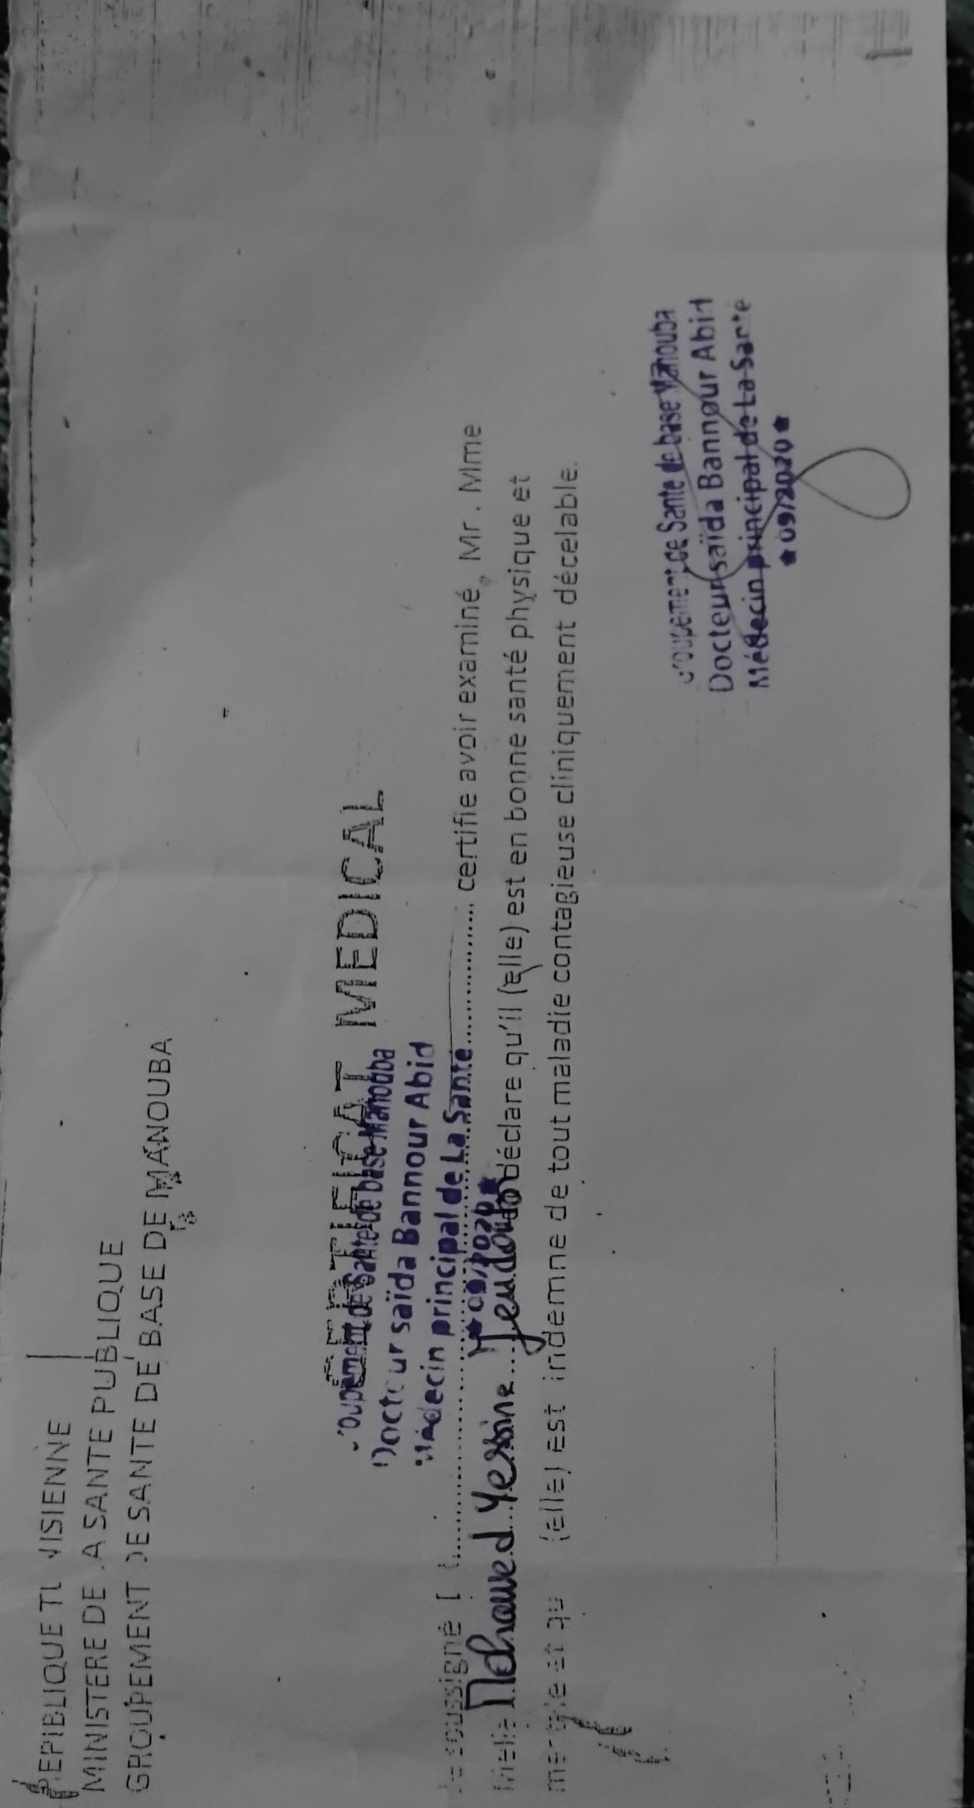 REPIBLIQUE TUNISIENNE
MINISTERE DE LA SANTE PUBLIQUE
GROUPEMENT DE SANTE DE BASE DE MANOUBA
CERTIFICAT MEDICAL
Groupement de Sante de base Manouba
Docteur saïda Bannour Abid
Médecin principal de La Sante
★ 09/2020 ★
Je soussigné certifie avoir examiné, Mr. Mme
Melle Mohamed Yessine déclare qu'il (elle) est en bonne santé physique et
mentale et qu (elle) est indemne de tout maladie contagieuse cliniquement décelable.
Groupement de Sante de base Manouba
Docteur saïda Bannour Abid
Médecin principal de La Sante
★ 09/2020 ★